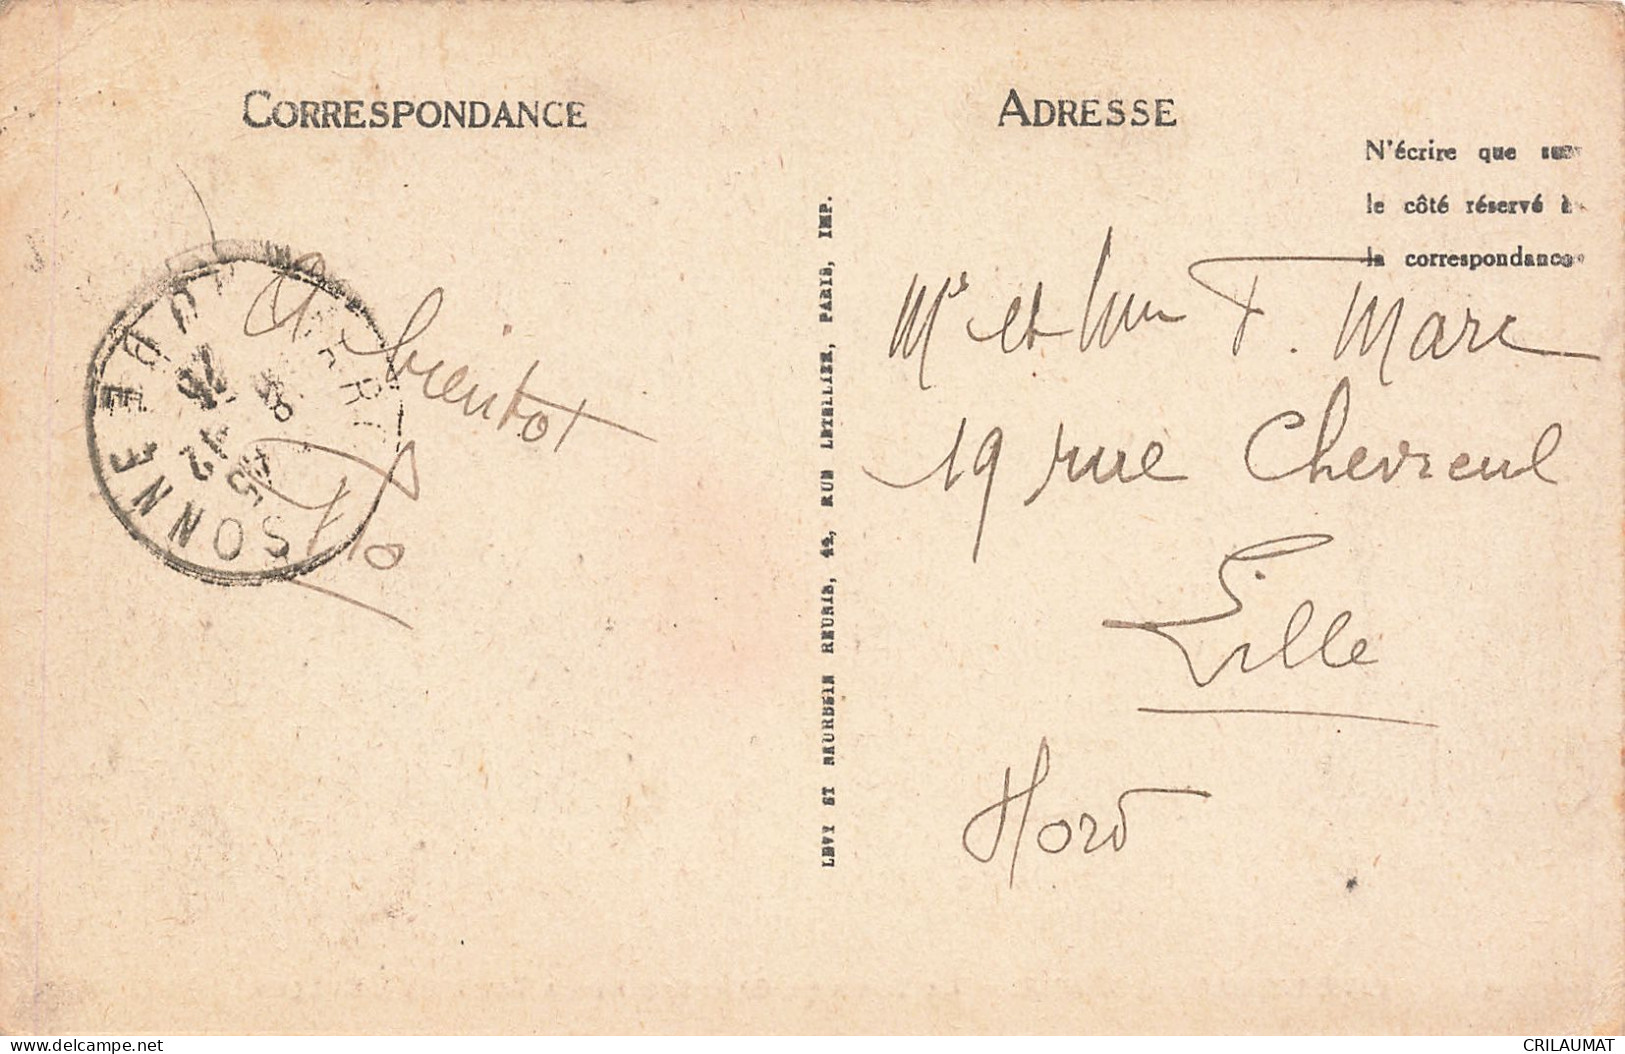 CORRESPONDANCE
ADRESSE
N'écrire que sur
le côté réservé à
la correspondance
A bientot
Mr et Mme F. Marc
19 rue Chevreul
Lille
Nord
LEVY ET NEURDEIN REUNIS, 44, RUE LETELLIER, PARIS, IMP.
CARCASSONNE AUDE
CRILAUMAT
delcampe.net